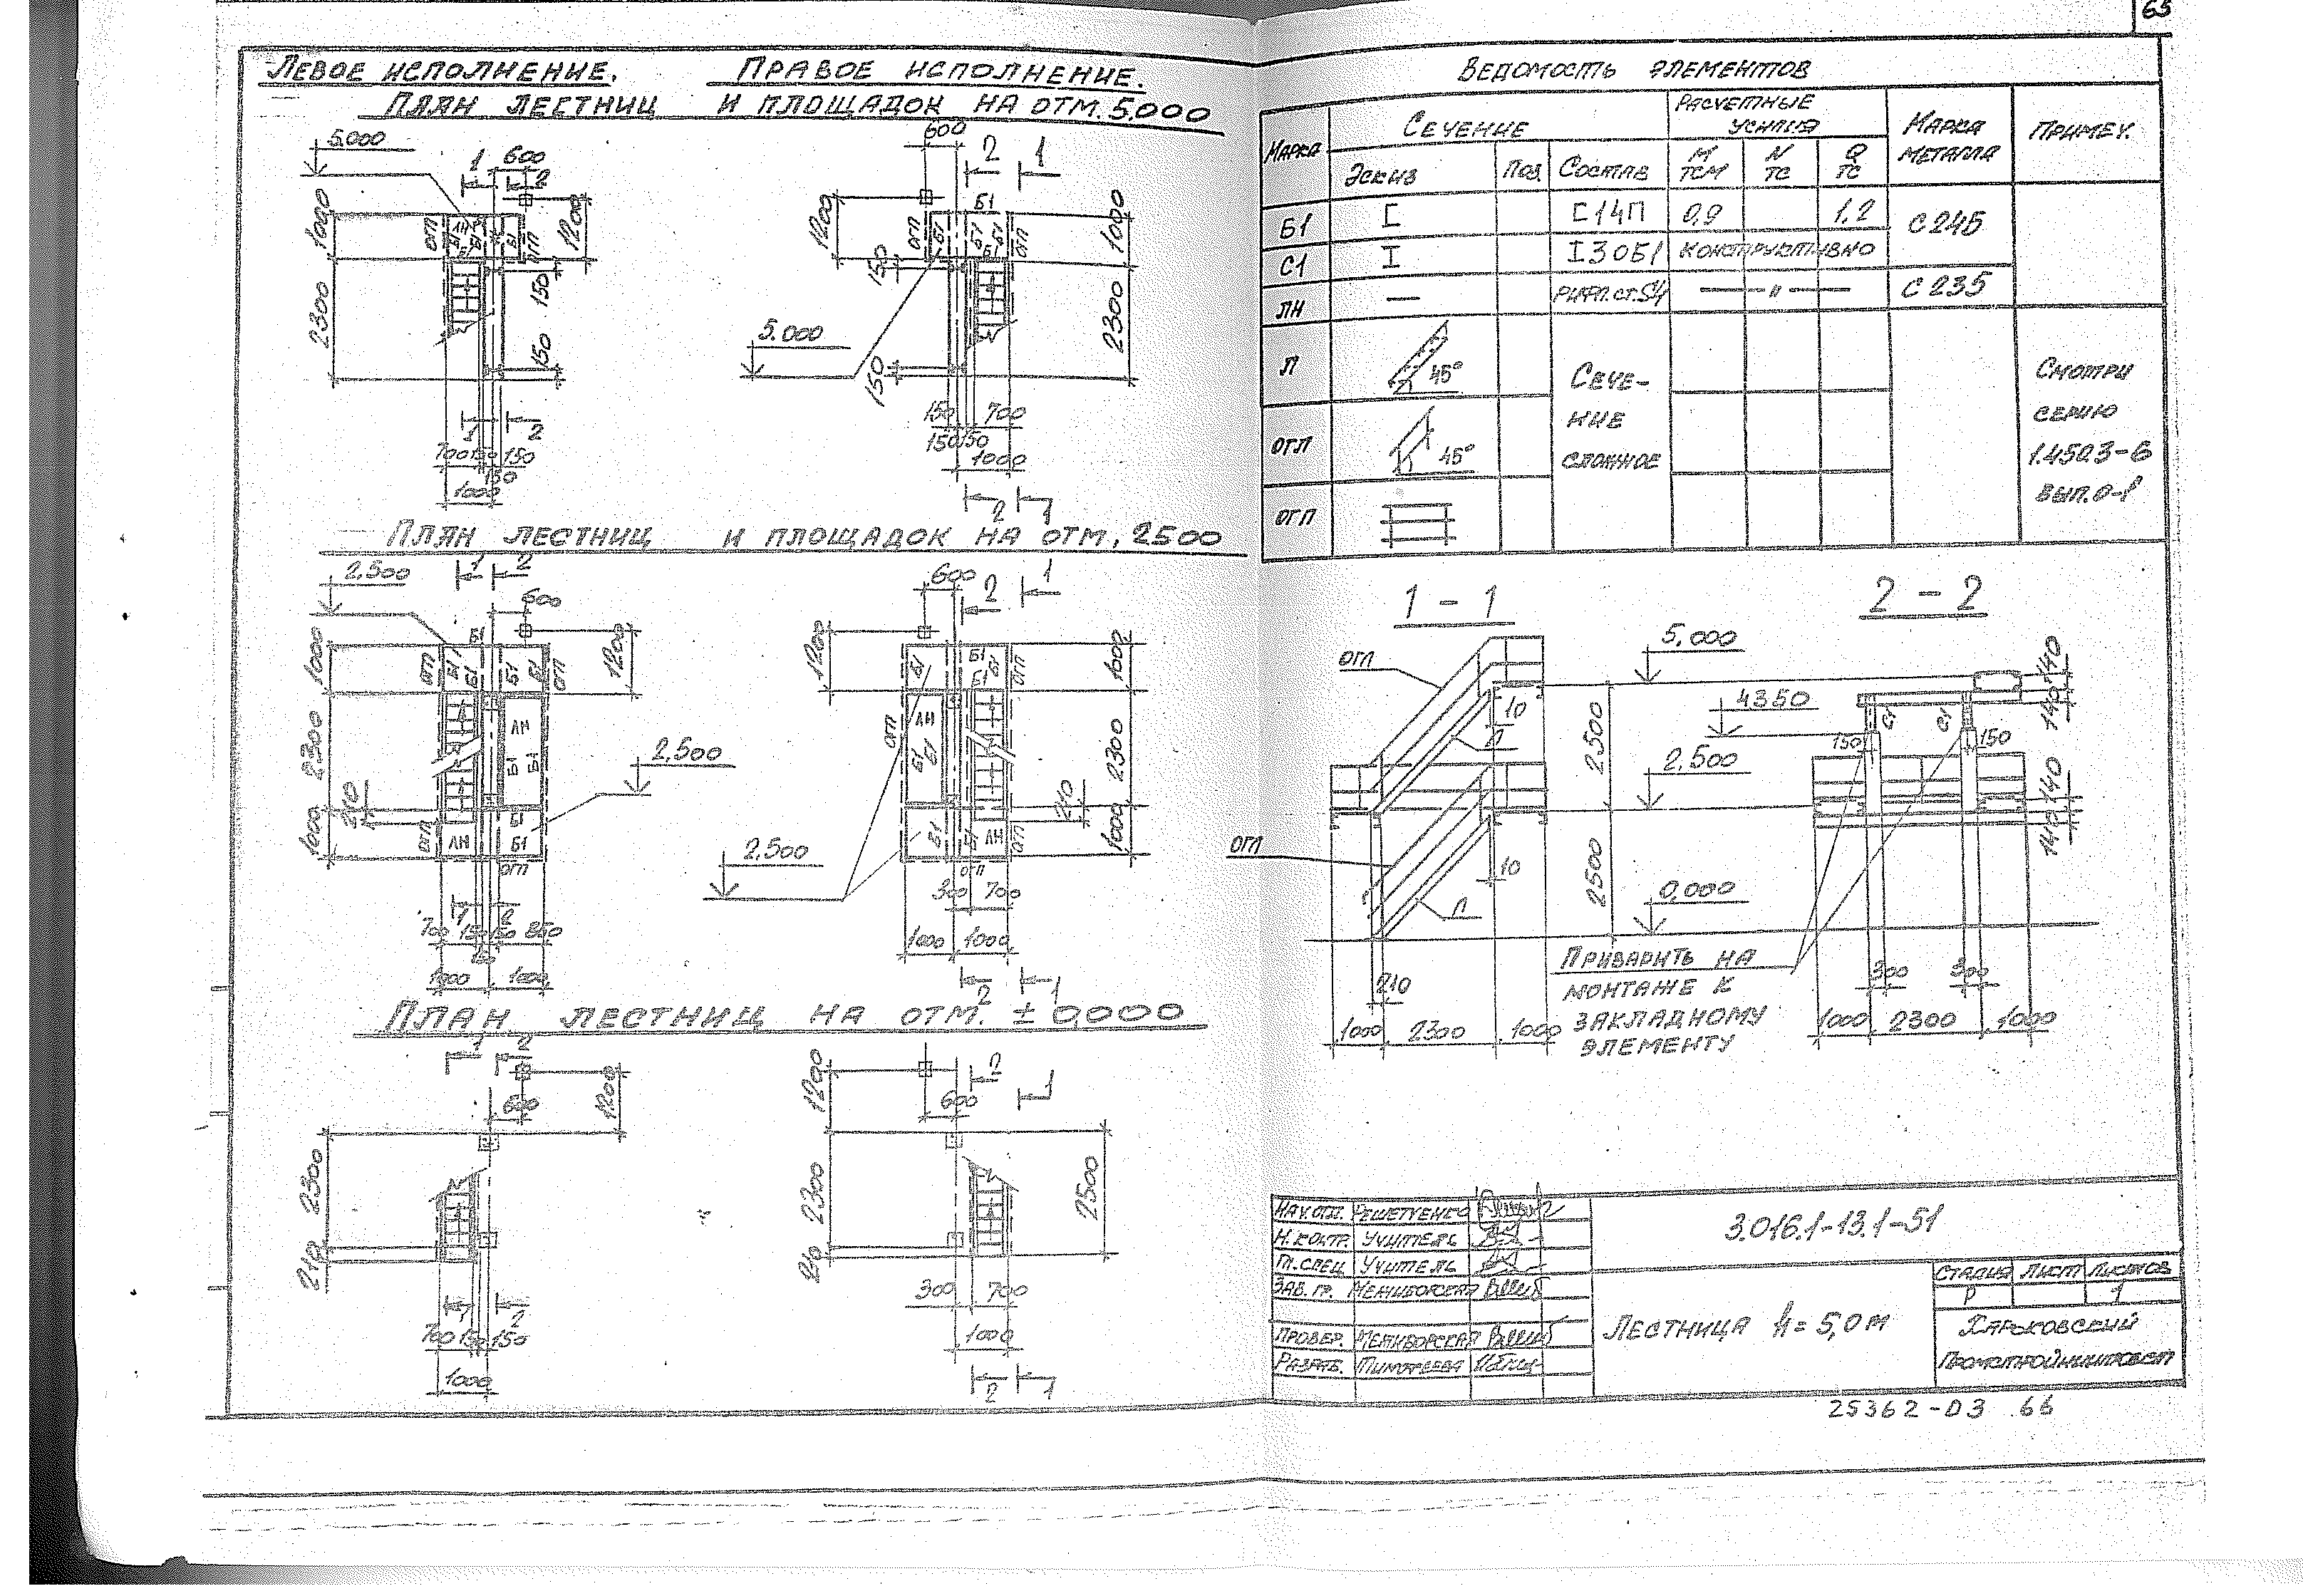 65
ЛЕВОЕ ИСПОЛНЕНИЕ.
ПРАВОЕ ИСПОЛНЕНИЕ.
ПЛАН ЛЕСТНИЦ И ПЛОЩАДОК НА ОТМ. 5.000
5.000
1
600
2
1000
ОГП
ЛН
Б1
Б1
Б1
Б1
ОГП
1200
2300
150
150
1
2
700
150
150
150
1000
600
2
1
1200
ОГП
Б1
Б1
Б1
Б1
Б1
ОГП
1000
150
2300
5.000
150
150
700
150
150
1000
2
1
ПЛАН ЛЕСТНИЦ И ПЛОЩАДОК НА ОТМ. 2500
2,500
1
2
600
1000
ОГП
Б1
Б1
Б1
Б1
Б1
ОГП
1200
2300
ЛН
Б1
Б1
2,500
210
1000
ОГП
ЛН
Б1
Б1
ОГП
1
2
700
150
150
850
150
1000
1000
600
2
1
1200
Б1
Б1
Б1
Б1
ОГП
1000
ОГП
ЛН
Б1
Б1
2300
210
2,500
Б1
Б1
ЛН
ОГП
1000
ОГП
300
700
1000
1000
2
1
ПЛАН ЛЕСТНИЦ НА ОТМ. ± 0,000
1
2
600
1200
2300
210
1
2
700
150
150
1000
1200
2
1
600
2300
2500
210
300
700
1000
2
1
ВЕДОМОСТЬ ЭЛЕМЕНТОВ
МАРКА
СЕЧЕНИЕ
РАСЧЕТНЫЕ УСИЛИЯ
МАРКА МЕТАЛЛА
ПРИМЕЧ.
ЭСКИЗ
ПОЗ.
СОСТАВ
М ТСМ
N ТС
Q ТС
Б1
[14П 0,9 1.2
С245
С1
I
I30Б1 КОНСТРУКТИВНО
ЛН
—
РИФЛ. СТ. S4 — " —
С235
Л
45°
ОГЛ
45°
ОГП
СЕЧЕ-
НИЕ
СЛОЖНОЕ
СМОТРИ
СЕРИЮ
1.450.3-6
ВЫП. 0-1
1 - 1
ОГЛ
10
Л
ОГЛ
10
Л
2500
2500
210
1000
2300
1000
2 - 2
5,000
4350
2,500
0,000
С1
С1
150
150
140
140
140
140
ПРИВАРИТЬ НА
МОНТАЖЕ К
ЗАКЛАДНОМУ
ЭЛЕМЕНТУ
300
300
1000
2300
1000
НАЧ. ОТД. РЕШЕТЧЕНКО
Н. КОНТР. УЧИТЕЛЬ
ГЛ. СПЕЦ УЧИТЕЛЬ
ЗАВ. ГР. МЕЖИБОРСКАЯ
ПРОВЕР. МЕЖИБОРСКАЯ
РАЗРАБ. ТИМОФЕЕВА
3.016.1-13.1-51
ЛЕСТНИЦА h = 5,0 м
СТАДИЯ ЛИСТ ЛИСТОВ
Р 1
ХАРЬКОВСКИЙ
ПРОМСТРОЙНИИПРОЕКТ
25362-03 66